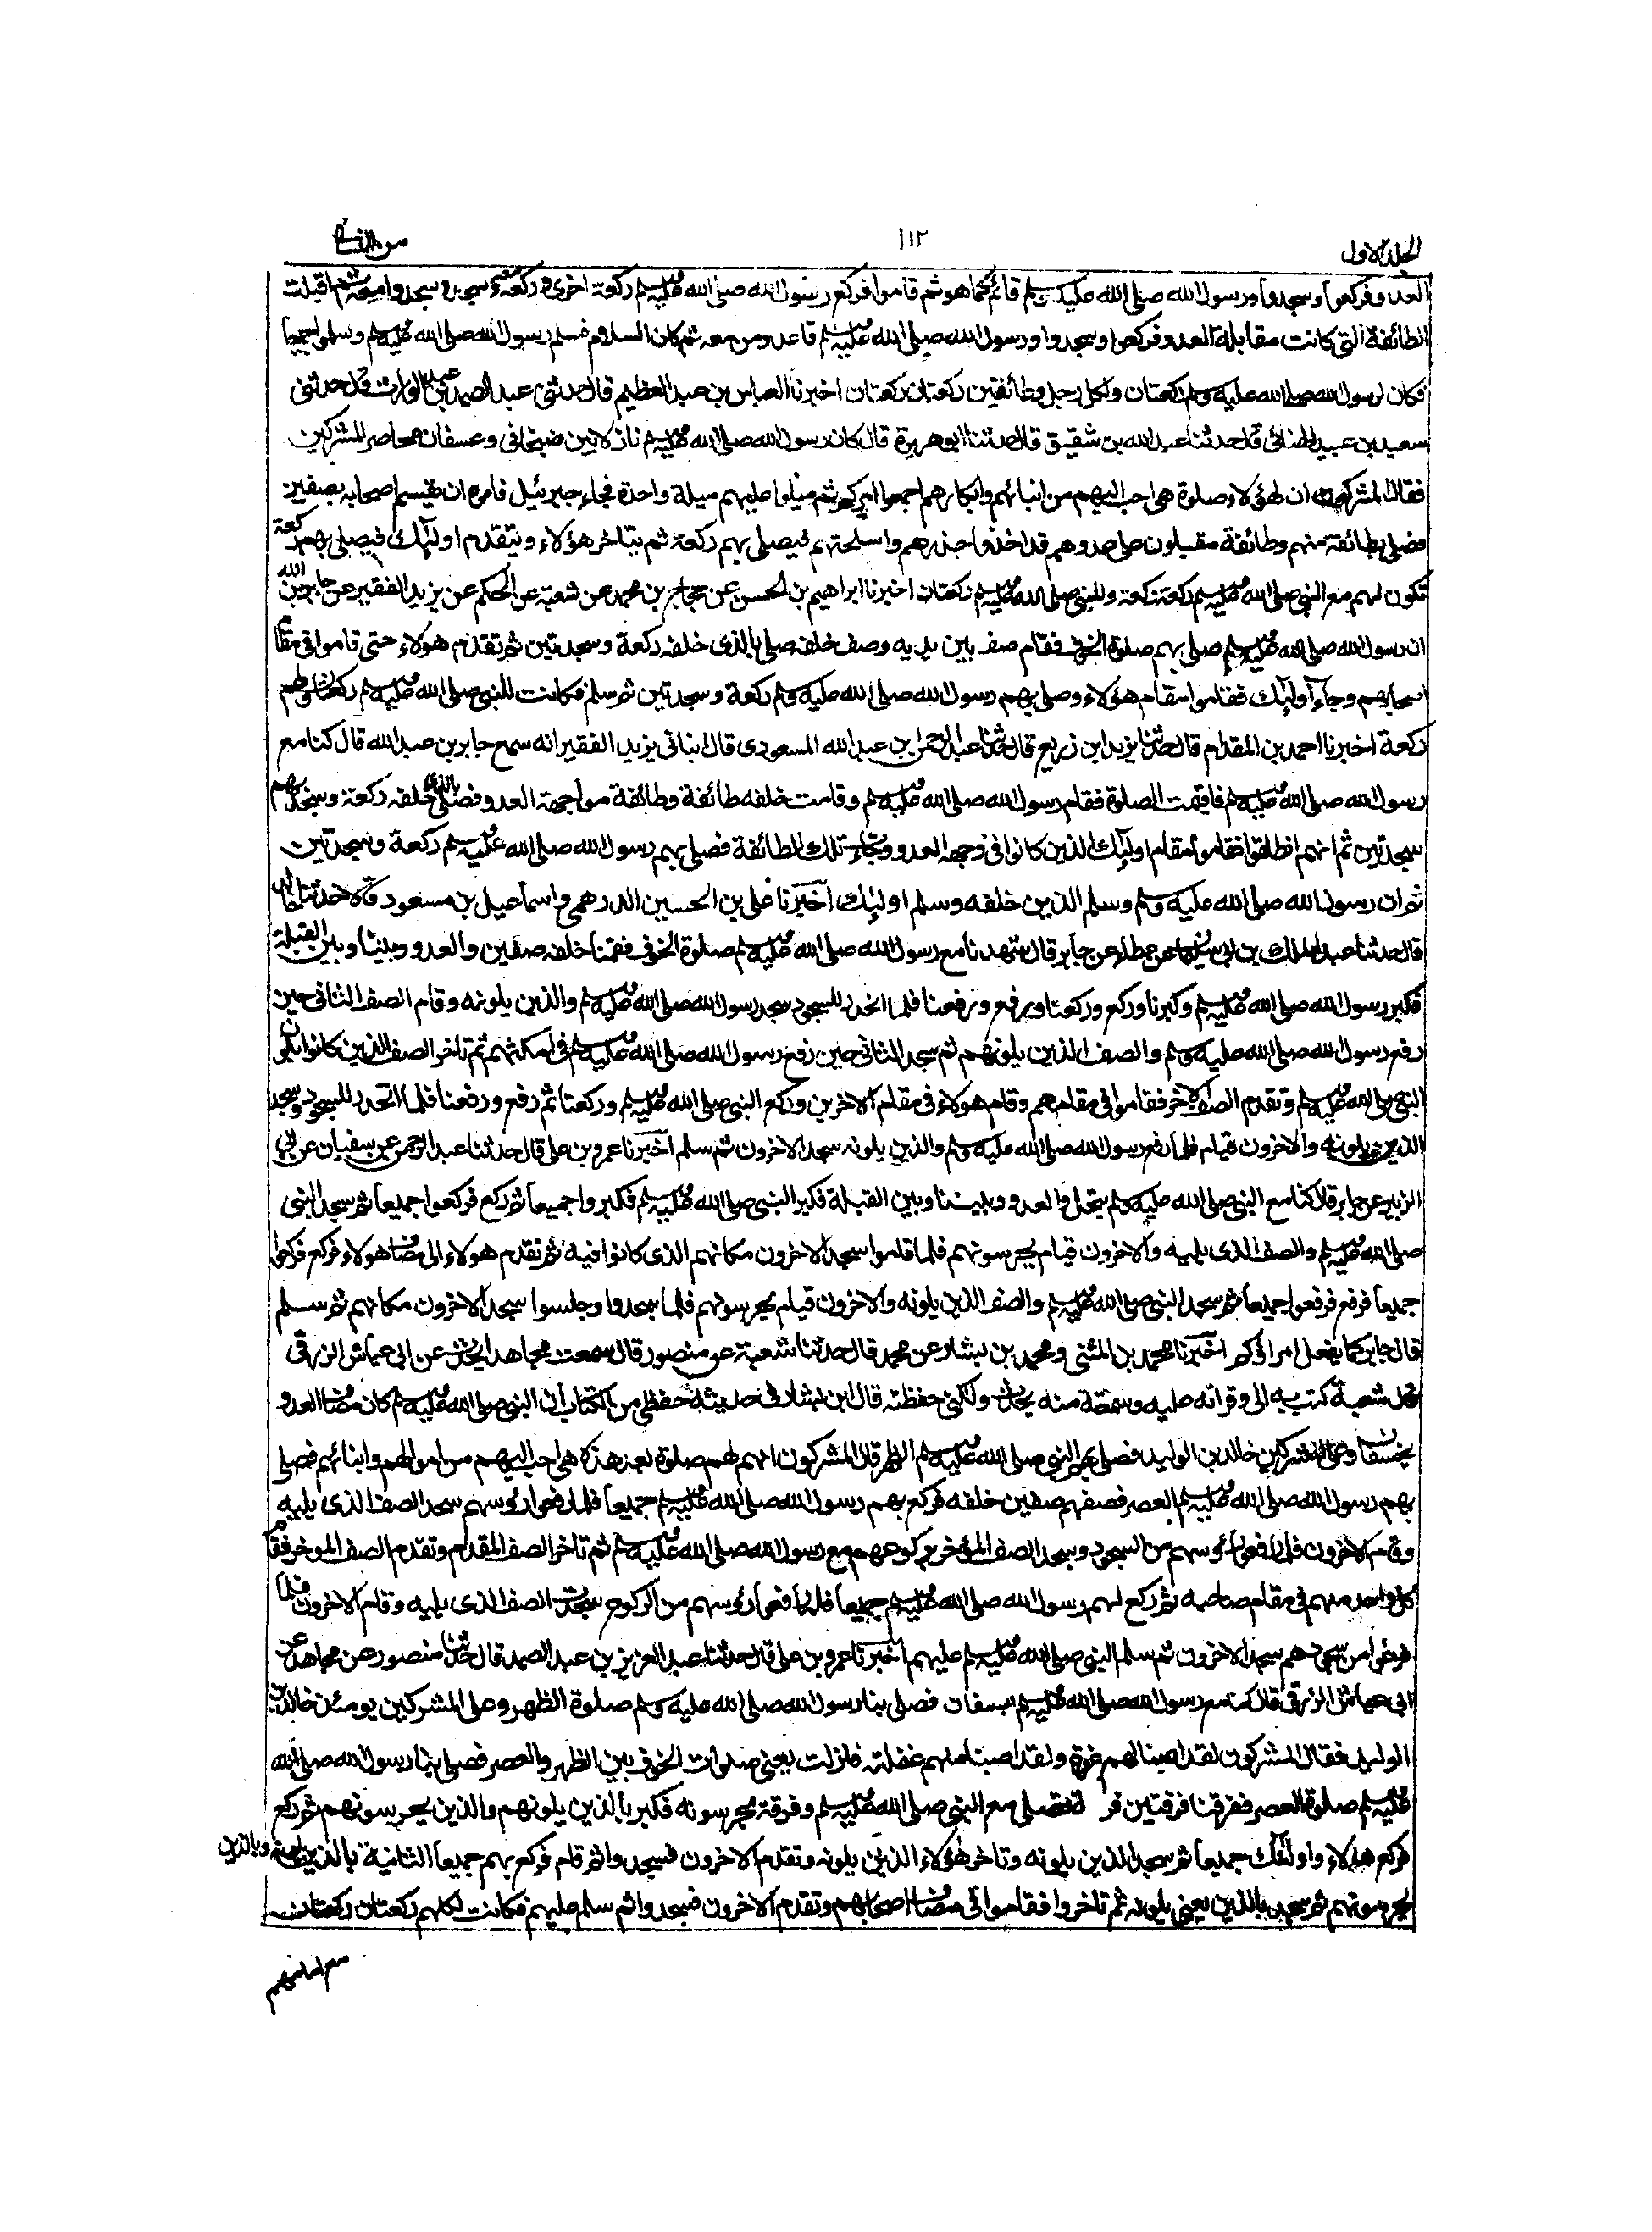 الجلد الاول
١١٢
من النسائي
العدو فركعوا وسجدوا ورسول الله صلى الله عليه وسلم قائم كما هو ثم قاموا فركع رسول الله صلى الله عليه وسلم ركعة اخرى وركعوا معه وسجد وسجدوا معه ثم اقبلت
الطائفة التي كانت مقابلة العدو فركعوا وسجدوا ورسول الله صلى الله عليه وسلم قاعد ومن معه ثم كان السلام فسلم رسول الله صلى الله عليه وسلم وسلموا جميعا
فكان لرسول الله صلى الله عليه وسلم ركعتان ولكل رجل وطائفتين ركعتان ركعتان اخبرنا العباس بن عبد العظيم قال حدثني عبد الصمد بن عبد الوارث قال حدثني
سعيد بن عبيد الهنائي قال حدثنا عبد الله بن شقيق قال حدثنا ابو هريرة قال كان رسول الله صلى الله عليه وسلم نازلا بين ضجنان وعسفان محاصر المشركين
فقال المشركون ان لهؤلاء صلوة هي احب اليهم من ابنائهم وابكارهم اجمعوا امركم ثم ميلوا عليهم ميلة واحدة فجاء جبرئيل فامره ان يقسم اصحابه بصفين
فصلى بطائفة منهم وطائفة مقبلون على عدوهم قد اخذوا حذرهم واسلحتهم فيصلي بهم ركعة ثم يتاخر هؤلاء ويتقدم اولئك فيصلي بهم ركعة
تكون لهم مع النبي صلى الله عليه وسلم ركعة ركعة وللنبي صلى الله عليه وسلم ركعتان اخبرنا ابراهيم بن الحسن عن حجاج بن محمد عن شعبة عن الحكم عن يزيد الفقير عن جابر بن عبد الله
ان رسول الله صلى الله عليه وسلم صلى بهم صلوة الخوف فقام صف بين يديه وصف خلفه صلى بالذي خلفه ركعة وسجدتين ثم تقدم هولاء حتى قاموا في مقام
اصحابهم وجاء اولئك فقاموا مقام هؤلاء وصلى بهم رسول الله صلى الله عليه وسلم ركعة وسجدتين ثم سلم فكانت للنبي صلى الله عليه وسلم ركعتان ولهم
ركعة اخبرنا احمد بن المقدام قال حدثنا يزيد ابن زريع قال حدثنا عبد الرحمن بن عبد الله المسعودي قال انباني يزيد الفقير انه سمع جابر بن عبد الله قال كنا مع
رسول الله صلى الله عليه وسلم فاقيمت الصلوة فقام رسول الله صلى الله عليه وسلم وقامت خلفه طائفة وطائفة مواجهة العدو فصلى بالذي خلفه ركعة وسجد بهم
سجدتين ثم انهم انطلقوا فقاموا مقام اولئك الذين كانوا في وجه العدو وجاءت تلك الطائفة فصلى بهم رسول الله صلى الله عليه وسلم ركعة وسجدتين
ثم ان رسول الله صلى الله عليه وسلم وسلم الذين خلفه وسلم اولئك اخبرنا علي بن الحسين الدرهمي و اسماعيل بن مسعود قالا حدثنا خالد
قال حدثنا عبد الملك بن ابي سليمان عن عطاء عن جابر قال شهدنا مع رسول الله صلى الله عليه وسلم صلوة الخوف فقمنا خلفه صفين والعدو بيننا وبين القبلة
فكبر رسول الله صلى الله عليه وسلم وكبرنا وركع وركعنا ورفع ورفعنا فلما انحدر للسجود سجد رسول الله صلى الله عليه وسلم والذين يلونه وقام الصف الثاني حين
رفع رسول الله صلى الله عليه وسلم والصف الذين يلونهم ثم سجد الثاني حين رفع رسول الله صلى الله عليه وسلم في امكنتهم ثم تاخر الصف الذين كانوا يلون
النبي صلى الله عليه وسلم وتقدم الصف الاخر فقاموا في مقامهم وقام هولاء في مقام الاخرين وركع النبي صلى الله عليه وسلم وركعنا ثم رفع ورفعنا فلما انحدر للسجود وسجد
الذين يلونه والاخرون قيام فلما رفع رسول الله صلى الله عليه وسلم والذين يلونه سجد الاخرون ثم سلم اخبرنا عمرو بن علي قال حدثنا عبد الرحمن عن سفيان عن ابي
الزبير عن جابر قال كنا مع النبي صلى الله عليه وسلم بنخل والعدو وبيننا وبين القبلة فكبر النبي صلى الله عليه وسلم فكبروا جميعا ثم ركع فركعوا جميعا ثم سجد النبي
صلى الله عليه وسلم والصف الذي يليه والاخرون قيام يحرسونهم فلما قاموا سجد الاخرون مكانهم الذي كانوا فيه ثم تقدم هولاء الى مصاف هولاء فركع فركعوا
جميعا فرفع فرفعوا جميعا ثم سجد النبي صلى الله عليه وسلم والصف الذين يلونه والاخرون قيام يحرسونهم فلما سجدوا وجلسوا سجد الاخرون مكانهم ثم سلم
قال جابر كما يفعل امراؤكم اخبرنا محمد بن المثنى ومحمد بن بشار عن محمد قال حدثنا شعبة عن منصور قال سمعت مجاهدا يحدث عن ابي عياش الزرقي
قال شعبة كتب به الي وقراته عليه وسمعته منه يحدث ولكني حفظته قال ابن بشار في حديثه حفظي من الكتاب ان النبي صلى الله عليه وسلم كان مصاف العدو
بعسفان وعلى المشركين خالد بن الوليد فصلى بهم النبي صلى الله عليه وسلم الظهر قال المشركون انهم لهم صلوة بعد هذه هي احب اليهم من اموالهم وابنائهم فصلى
بهم رسول الله صلى الله عليه وسلم العصر فصفهم صفين خلفه فركع بهم رسول الله صلى الله عليه وسلم جميعا فلما رفعوا رؤسهم سجد الصف الذي يليه
وقام الاخرون فلما رفعوا رؤسهم من السجود وسجد الصف المؤخر بركوعهم مع رسول الله صلى الله عليه وسلم ثم تاخر الصف المقدم وتقدم الصف الموخر فقام
كل واحد منهم في مقام صاحبه ثم ركع لهم رسول الله صلى الله عليه وسلم جميعا فلما رفعوا رؤسهم من الركوع سجد الصف الذي يليه وقام الاخرون فلما
فرغوا من سجودهم سجد الاخرون ثم سلم النبي صلى الله عليه وسلم عليهم اخبرنا عمرو بن علي قال حدثنا عبد العزيز بن عبد الصمد قال حدثنا منصور عن مجاهد عن
ابي عياش الزرقي قال كنا مع رسول الله صلى الله عليه وسلم بعسفان فصلى بنا رسول الله صلى الله عليه وسلم صلوة الظهر وعلى المشركين يومئذ خالد بن
الوليد فقال المشركون لقد اصبنا لهم غرة ولقد اصبنا منهم غفلة فنزلت يعني صلوات الخوف بين الظهر والعصر فصلى بنا رسول الله صلى الله
عليه وسلم صلوة العصر ففرقنا فرقتين فرقة تصلي مع النبي صلى الله عليه وسلم وفرقة يحرسونه فكبر بالذين يلونهم والذين يحرسونهم ثم ركع
فركع هؤلاء واولئك جميعا ثم سجد الذين يلونه وتاخر هؤلاء الذين يلونه وتقدم الاخرون فسجدوا ثم قام فركع بهم جميعا الثانية بالذين يلونه وبالذين
يحرسونهم ثم سجد بالذين يعني يلونه ثم تاخروا فقاموا في مصاف اصحابهم وتقدم الاخرون فسجدوا ثم سلم عليهم فكانت لكلهم ركعتان ركعتان
مع امامهم